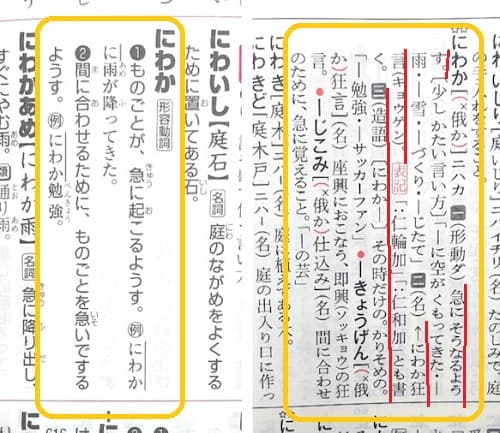 にわいし【庭石】名詞 庭のながめをよくする
ために置いてある石。
にわか 形容動詞
❶ものごとが、急に起こるようす。例にわか
に雨が降ってきた。
❷間に合わせるために、ものごとを急いでする
ようす。例にわか勉強。
にわかあめ【にわか雨】名詞 急に降り出し、
すぐにやむ雨。類通り雨。
にわか[(×俄か)]ニハカ 一(形動ダ) 急にそうなるよう
す。〔少しかたい言い方〕「―に空がくもってきた・―
雨・―雪・―づくり・―じたて」二(名)↑にわか狂
言(キョウゲン)。表記「仁輪加」「仁和加」とも書
く。三(造語)〔にわか―〕その時だけの。かりそめの。
「―勉強・―サッカーファン」●―きょうげん[(×俄
か)狂言](名) 座興におこなう、即興(ソッキョウ)の狂
言。●―じこみ[(×俄か)仕込み](名) 間に合わせ
のために、急に覚えること。「―の芸」
にわきど[庭木戸]ニハ―(名) 庭の出入り口に作っ